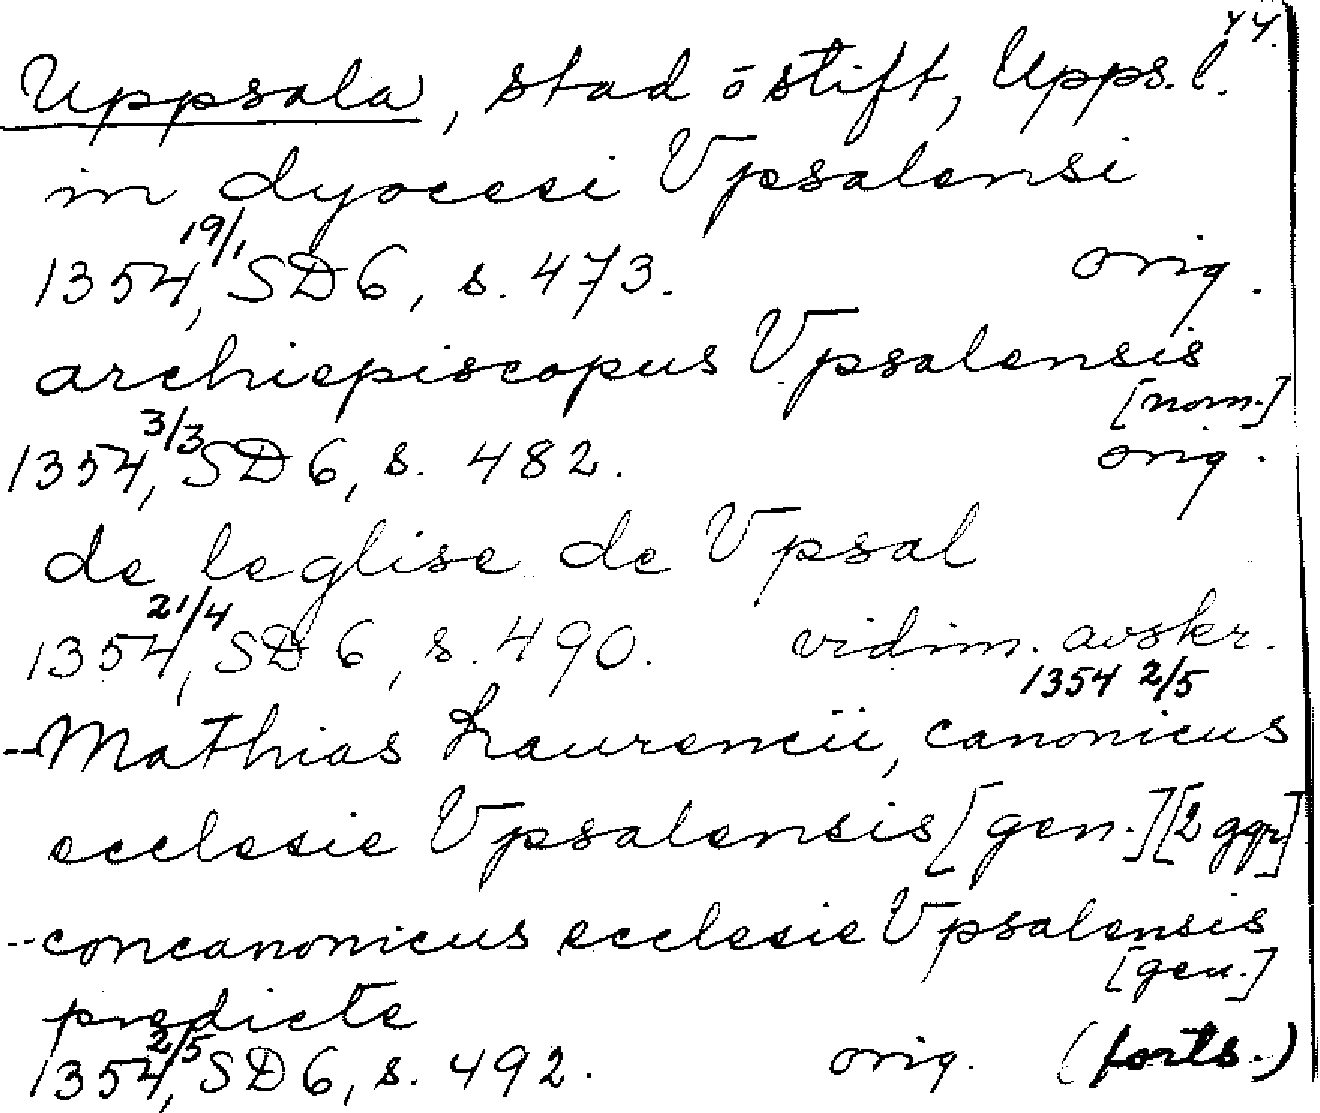 44.
Uppsala, stad o stift, Upps. l.
in dyocesi Vpsalensi
1354 19/1, SD 6, s. 473. orig.
archiepiscopus Vpsalensis [nom.]
1354 3/3, SD 6, s. 482. orig.
de leglise de Vpsal
1354 21/4, SD 6, s. 490. vidim. avskr. 1354 2/5
--Mathias Laurencii, canonicus
ecclesie Vpsalensis [gen.] [2 ggr]
--concanonicus ecclesie Vpsalensis [gen.]
predicte
1354 2/5, SD 6, s. 492. orig. (forts.)